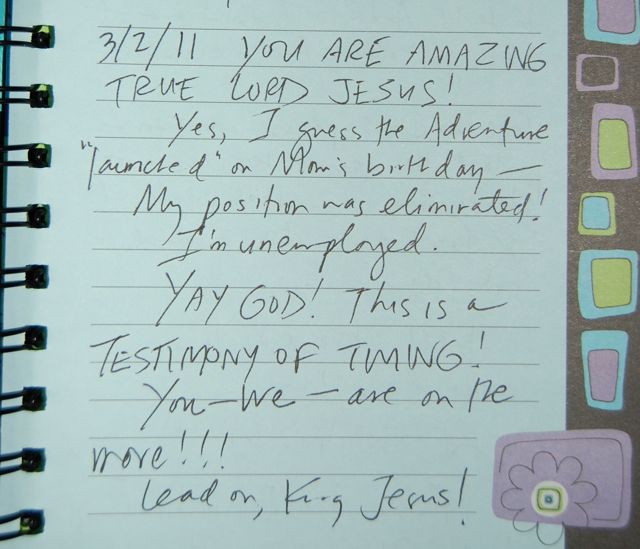 3/2/11 YOU ARE AMAZING
TRUE LORD JESUS!
Yes, I guess the Adventure
"launched" on Mom's birthday —
My position was eliminated!
I'm unemployed.
YAY GOD! This is a
TESTIMONY OF TIMING!
You — We — are on the
move!!!
Lead on, King Jesus!